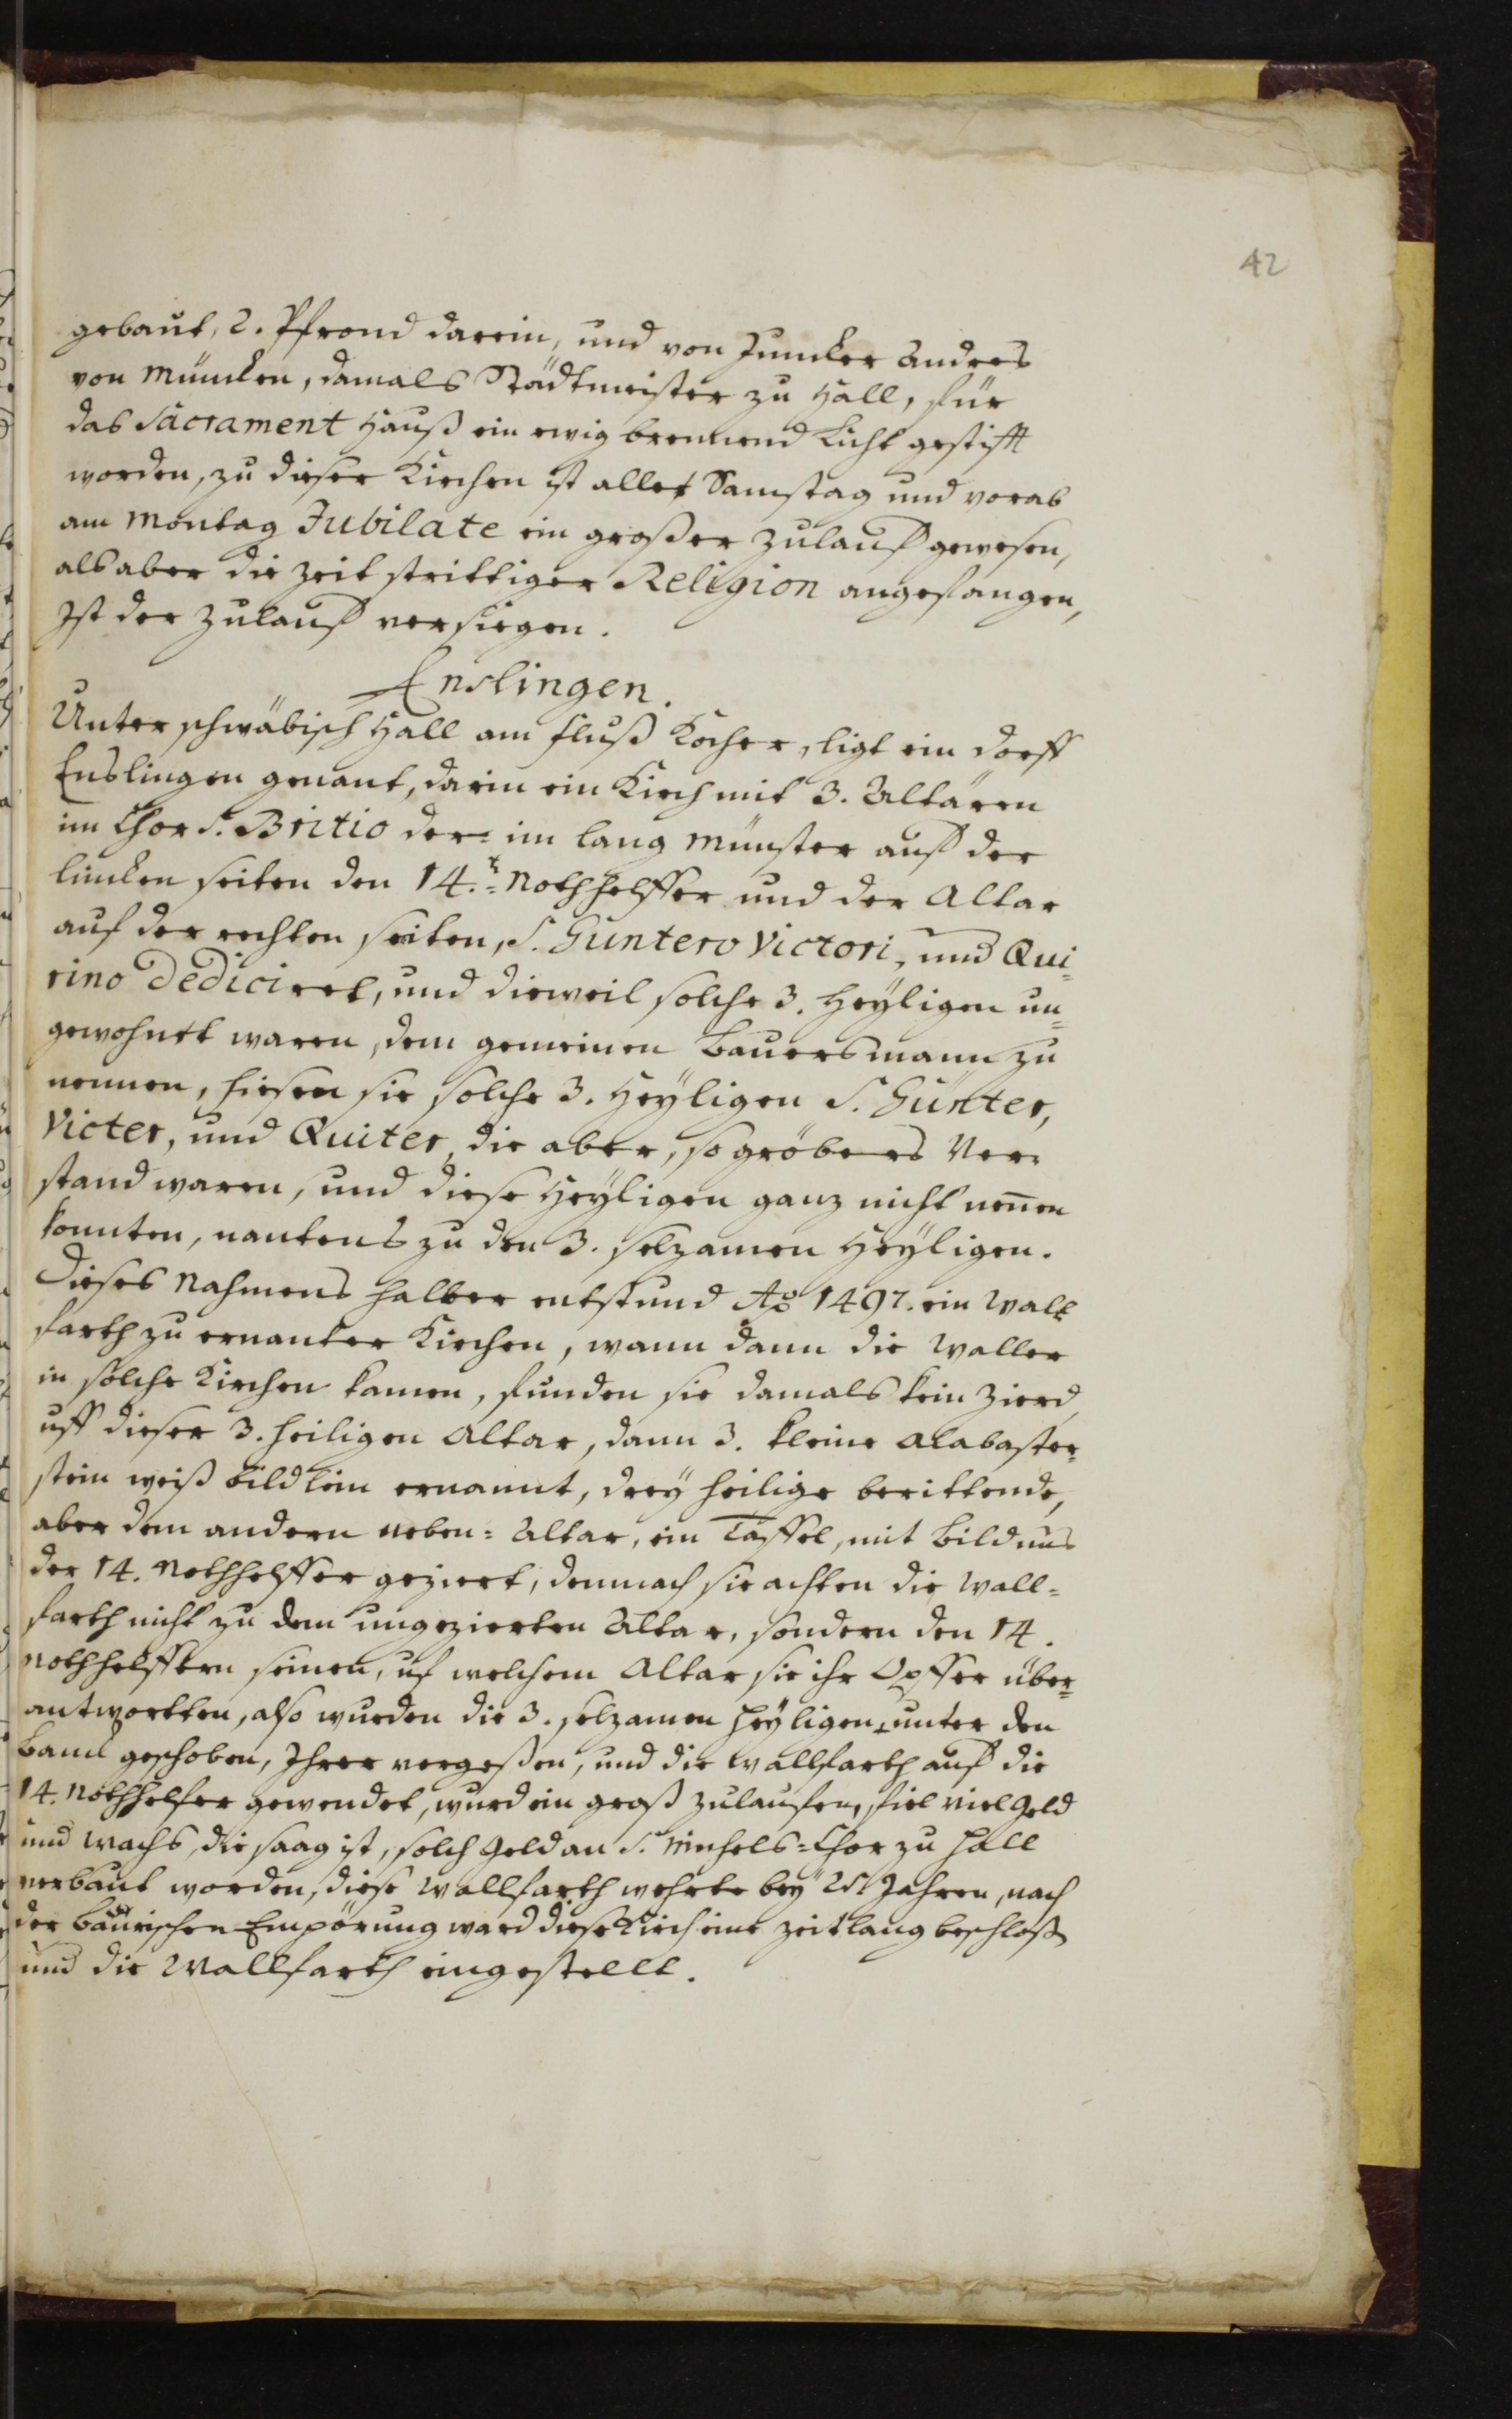 42
gebaut, 2. Pfrond darein, und von Juncker Andres
von Müncken, damals Städtmeister zu Hall, für
das Sacrament Hauß ein ewig brennend Licht gestifft
worden, zu dieser Kirchen ist aller Samstag und vorab
am Montag Jubilate ein großer Zulauff gewesen,
als aber die Zeit strittiger Religion angefangen,
Ist der Zulauff versiegen.
Enslingen.
Unter schwäbisch Hall am fluß Kocher, ligt ein dorff
Enslingen genant, darin ein Kirch mit 3. Altären
im Chor S. Britio der im lang Münster auff der
lincken seiten den 14. Nothhelffer und der Altar
auf der rechten seiten, S. Guntero Victori, und Qui=
rino Dediciret, und dieweil solche 3. Heyligen un=
gewohnet waren, dem gemeinen Bauersmann zu
nennen, hiesen sie solche 3. Heyligen S. Günter,
Victer, und Quiter, die aber, so gröbers Ver=
stand waren, und diese Heyligen ganz nicht neñen
konnten, nantens zu den 3. selzamen Heyligen.
Dieses Nahmens halber entstund Aō 1497. ein Wall
farth zu ernanter Kirchen, wann dann die Waller
in solche Kirchen kamen, funden sie damals kein Zierd,
uff dieser 3. heiligen Altar, dann 3. kleine Alabaster=
stein weiß bildlein ernannt, drey heilige berittende,
aber dem andern neben= Altar, ein Taffel, mit Bildnus
der 14. Nothhelffer geziert, demnach sie achten die Wall=
farth nicht zu dem ungezierten Altar, sondern den 14.
Nothhelffern seinen, uf welchem Altar sie ihr Opffer über=
antwortten, also wurden die 3. selzamen Heyligen unter den
banck geschoben, Ihrer vergeßen, und die Wallfarth auff die
14. Nothhelfer gewendet, wurd ein groß zulauffen, fiel viel Geld
und Wachs, die saag ist, solch Geld an S. Michels=Chor zu Hall
verbaut worden, diese Wallfarth wehrte bey Jahren, nach
der bäurischen Empörung ward diese Kirch eine zeitlang beschloß
und die Wallfarth eingestellt.